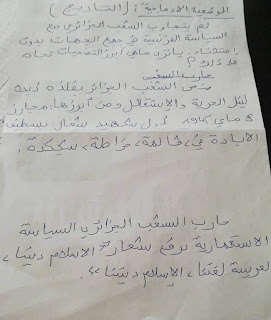 الوضعية الادماجية: (التاريخ)
لم يتجاوب الشعب الجزائري مع
السياسة الفرنسية في جميع الجهات بدون
استثناء. ماهي ابرز التضحيات تجاه
ذلك؟
حارب الشعب
ضحى الشعب الجزائر
ليل الحرية والاستقلال ومن أبرزها: مجازر
8 ماي 1945 شهيد سعال بسطيف
الابادة في قالمة، خراطة، سكيكدة.
حارب الشعب الجزائري السياسة
الاستعمارية برفع شعار "الاسلام ديننا،
العربية لغتنا، الإسلام ديننا".